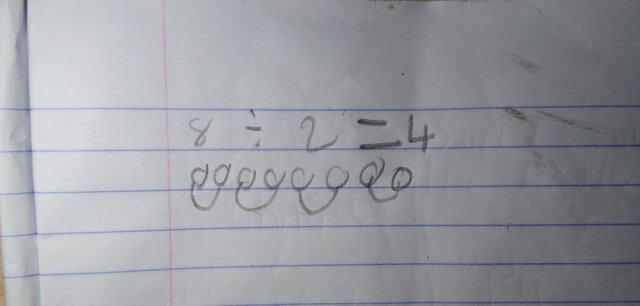 8 ÷ 2 = 4